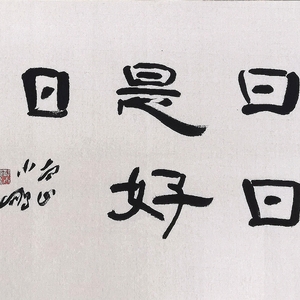 日日
是好
日